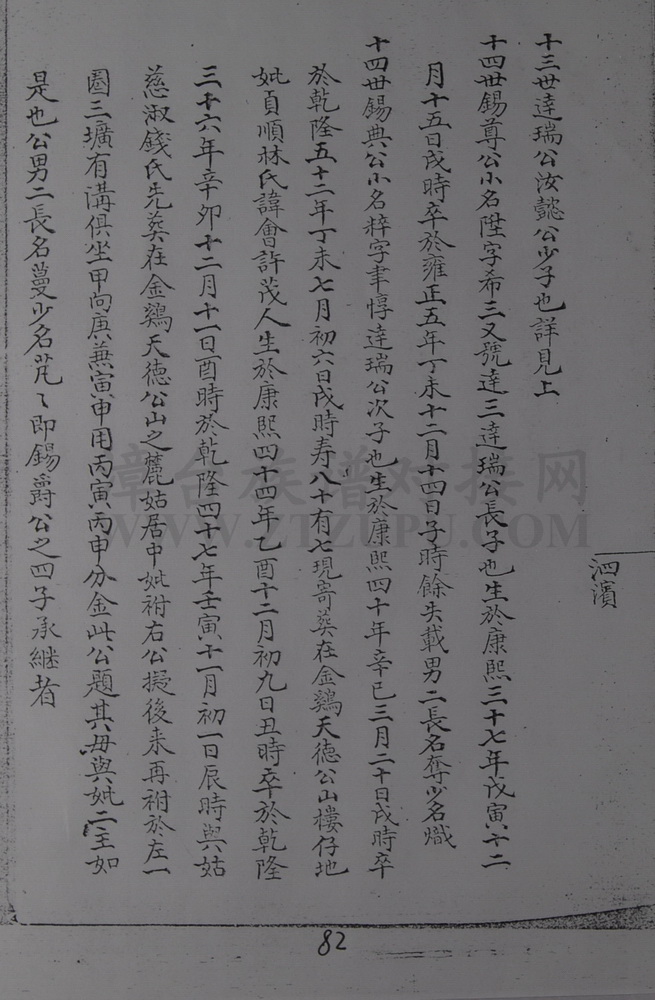 泗濱
十三世達瑞公汝懿公少子也詳見上
十四世錫尊公小名陞字希三又號達三達瑞公長子也生於康熙三十七年戊寅十二
月十五日戌時卒於雍正五年丁未十二月十四日子時餘失載男二長名奪少名熾
十四世錫典公小名粹字聿惇達瑞公次子也生於康熙四十年辛巳三月二十日戌時卒
於乾隆五十二年丁未七月初六日戌時寿八十有七現寄葬在金鷄天德公山樓仔地
妣貞順林氏諱會許茂人生於康熙四十四年乙酉十二月初九日丑時卒於乾隆
三十六年辛卯十二月十一日酉時於乾隆四十七年壬寅十一月初一日辰時與姑
慈淑錢氏先葬在金鷄天德公山之麓姑居中妣祔右公擬後来再祔於左一
圏三壙有溝俱坐甲向庚兼寅申用丙寅丙申分金此公題其毋與妣二主如
是也公男二長名蔓少名芃〻即錫爵公之四子承継者
82
章台族譜对接网
WWW.ZTZUPU.COM